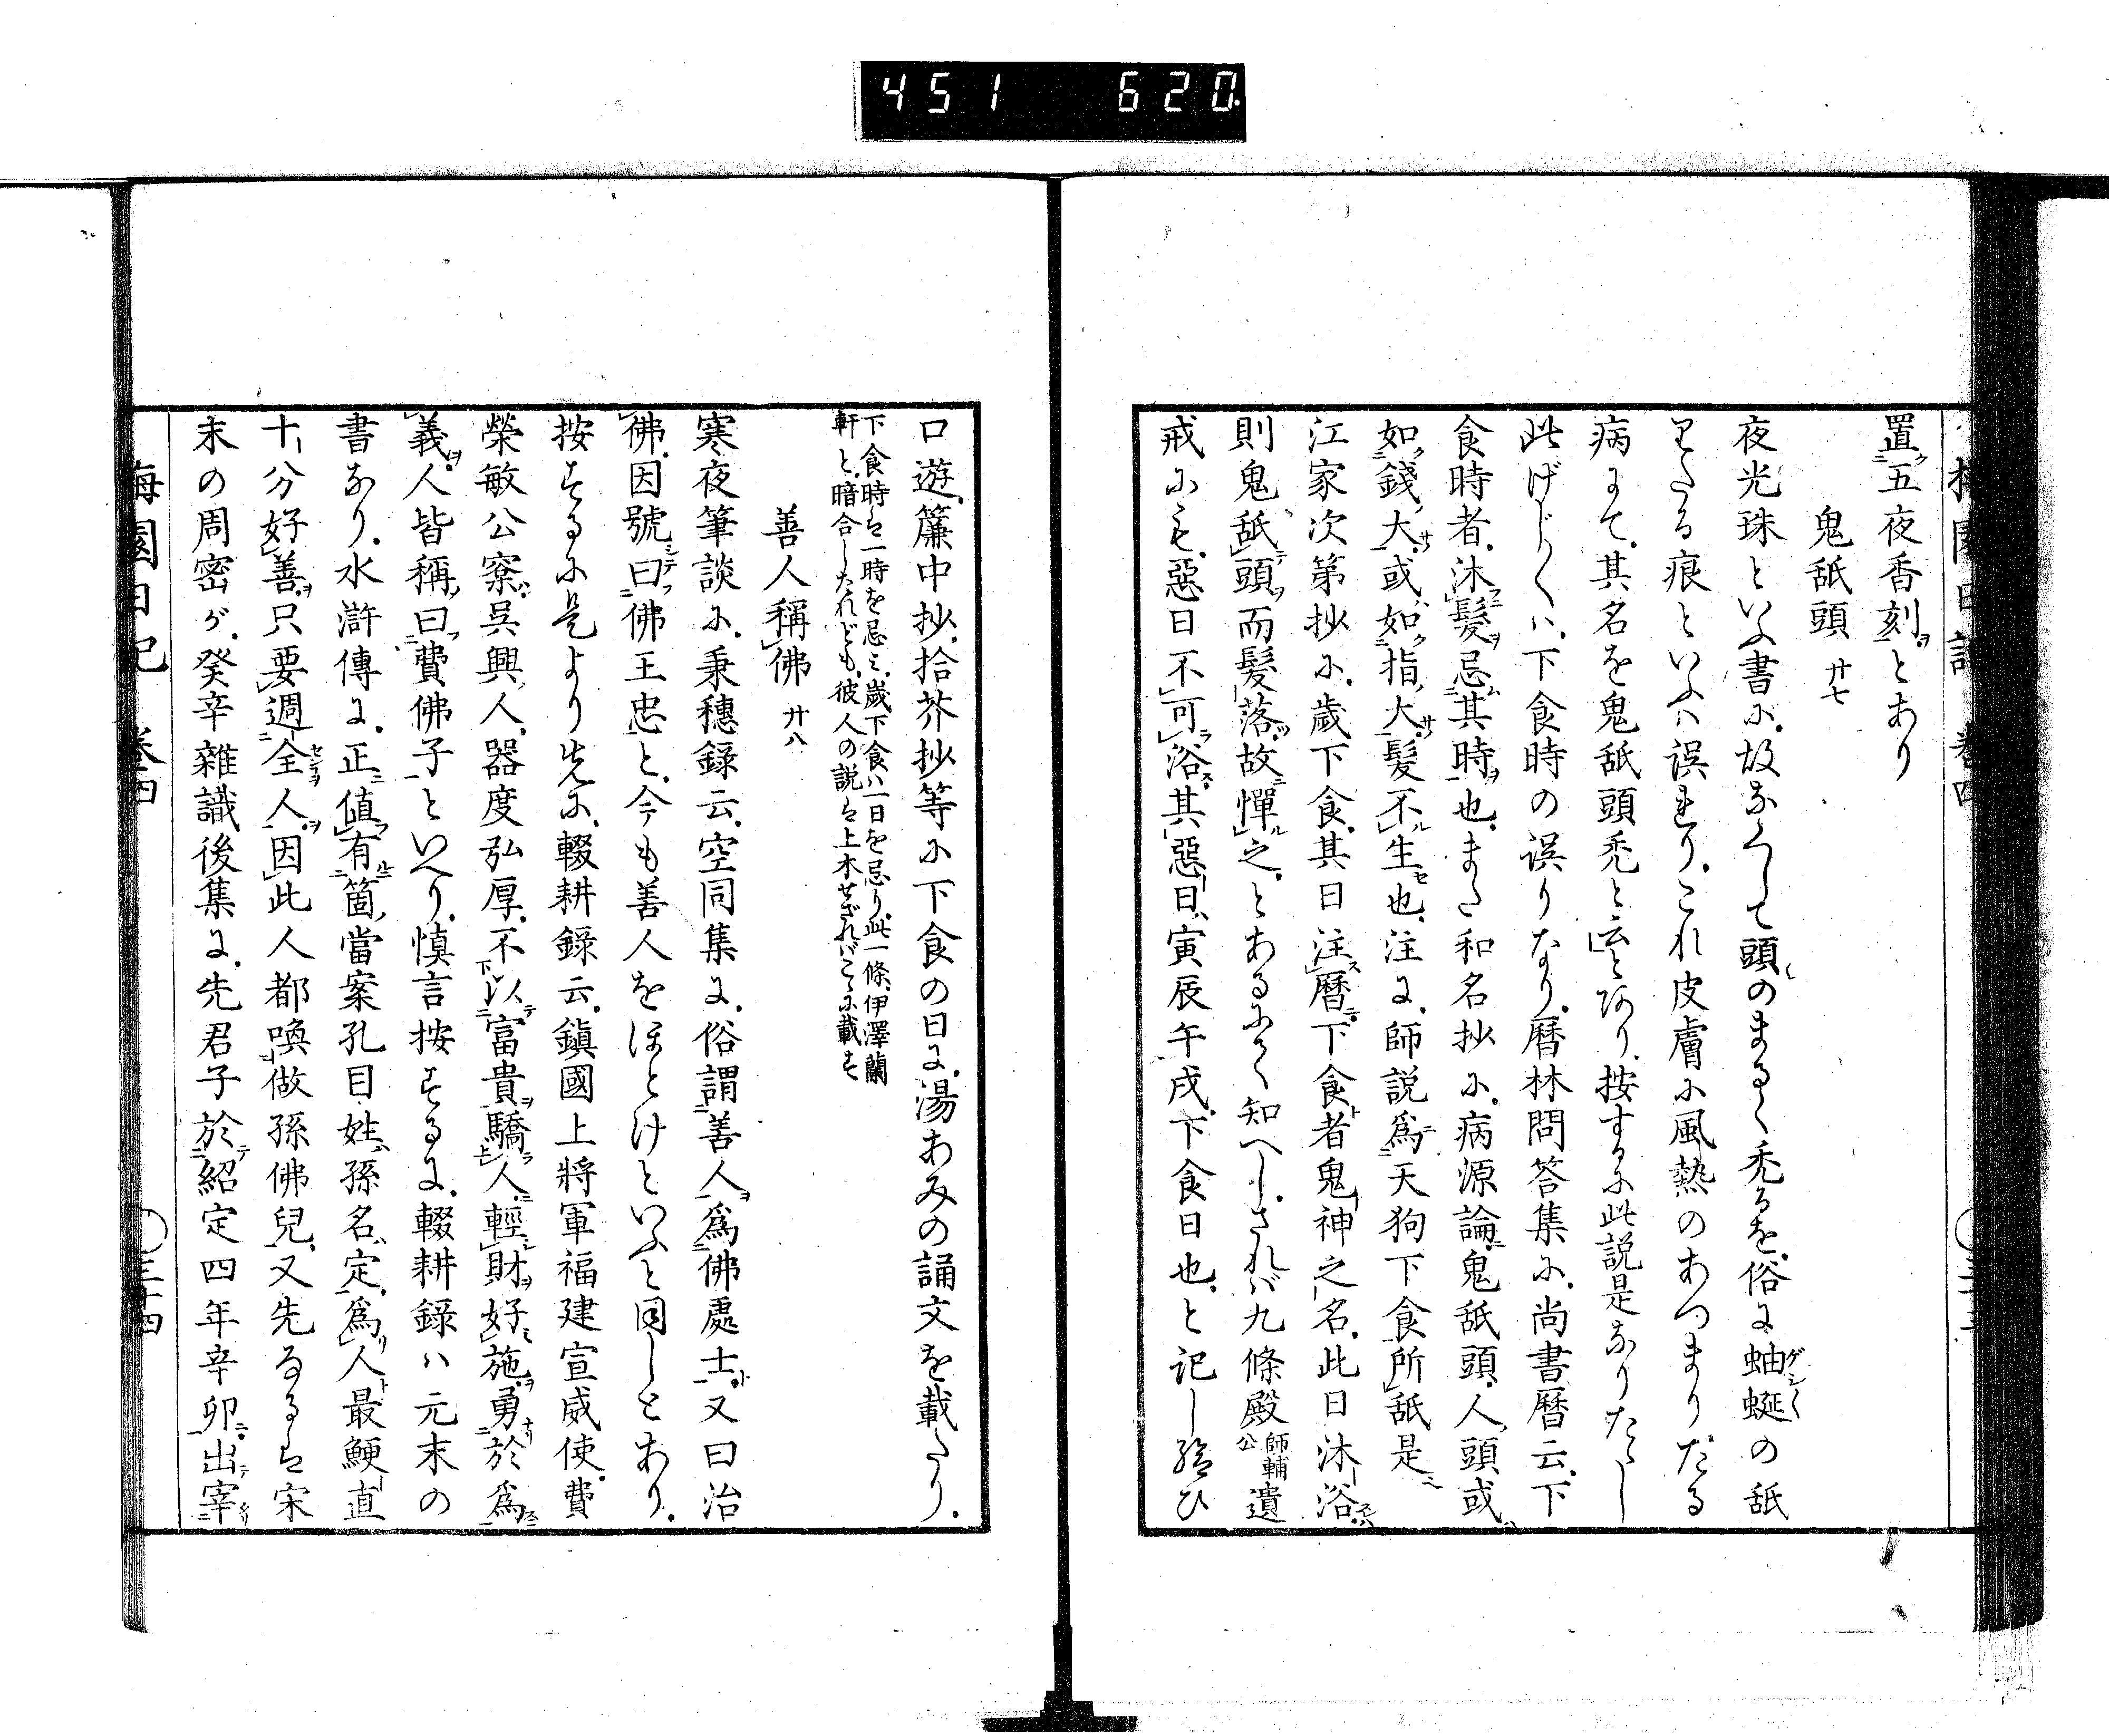 451 620
置五夜香刻ヲとあり
鬼舐頭 廿七
夜光珠といふ書に、故なくして頭のまるく禿るを、俗に蚰蜒の舐
りたる痕といふハ誤れり、これ皮膚に風熱のあつまりだる
病にて、其名を鬼舐頭禿と云とあり、按するに此説是なりたゝし
此げじ〳〵ハ、下食時の誤りなり、暦林問答集に、尚書暦云、下
食時者、沐髮忌其時也、また和名抄に、病源論、鬼舐頭、人頭或
如錢大、或如指大、髮不生也、注に、師説爲天狗下食所舐是
江家次第抄に、歲下食、其日注曆、下食者鬼神之名、此日沐浴、
則鬼舐頭而髮落、故憚之、とあるにて知へし、されバ九條殿師輔公遺
戒にも、惡日不可浴、其惡日、寅辰午戌、下食日也、と記し給ひ
口遊、簾中抄、拾芥抄等に下食の日に、湯あみの誦文を載たり、
下食時は一時を忌ミ、歲下食ハ一日を忌り、此一條、伊澤蘭
軒と、暗合したれども、彼人の説は上木せざれバこゝに載す
善人稱佛 廿八
寒夜筆談に、秉穗錄云、空同集に、俗謂善人爲佛處士、又曰治
佛、因號曰佛王忠と、今も善人をほとけといふと同しとあり、
按するに是より先に、輟耕錄云、鎭國上將軍福建宣威使、費
榮敏公寮、吳興人、器度弘厚、不以富貴驕人、輕財好施、勇於爲
義、人皆稱曰費佛子といへり、愼言按するに、輟耕錄ハ元末の
書なり、水滸傳に、正値有箇當案孔目、姓孫名定、爲人最鯁直
十分好善、只要週全人、因此人都喚做孫佛兒、又先なるは宋
末の周密が、癸辛雜識後集に、先君子於紹定四年辛卯、出宰
梅園日記 卷四 三十四